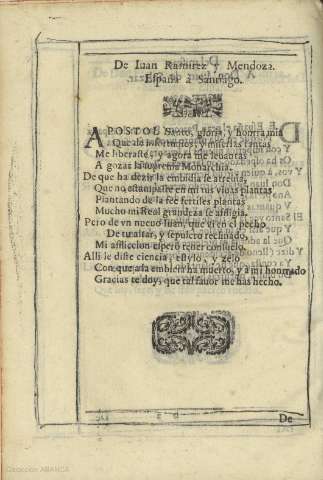 De Iuan Ramirez y Mendoza.
España a Santiago.
APOSTOL Santo, gloria, y honra mia
Que de infortunios, y muertas tantas
Me liberaste, y agora me leuantas
A gozar la suprema Monarchia.
De que ha dezir la embidia se atreuia
Que no estampaste en mi tus viuas plantas
Plantando de la fee fertiles plantas
Mucho mi Real grandeza se afligia.
Pero de vn nueuo Iuan, que en el pecho
De tu altar, y sepulcro reclinado,
Mi afliccion espero tener consuelo,
Alli le diste ciencia, estylo, y zelo
Con que a la embidia ha muerto, y a mi honrado
Gracias te doy, que tal fauor me has hecho.
De
Colección ABANCA